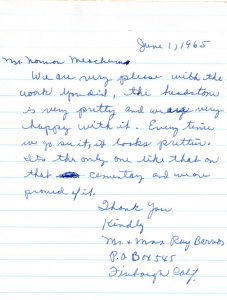 June 1, 1965
Mr. Norman
We are very please with the
work you did, the headstone
is very pretty and we are very
happy with it. Every time
we go see it, it looks prettier.
It's the only one like that on
that cemetary and we are
proud of it.
Thank You
Kindly
Mr. & Mrs Ray
P.O Box 545
Calif.